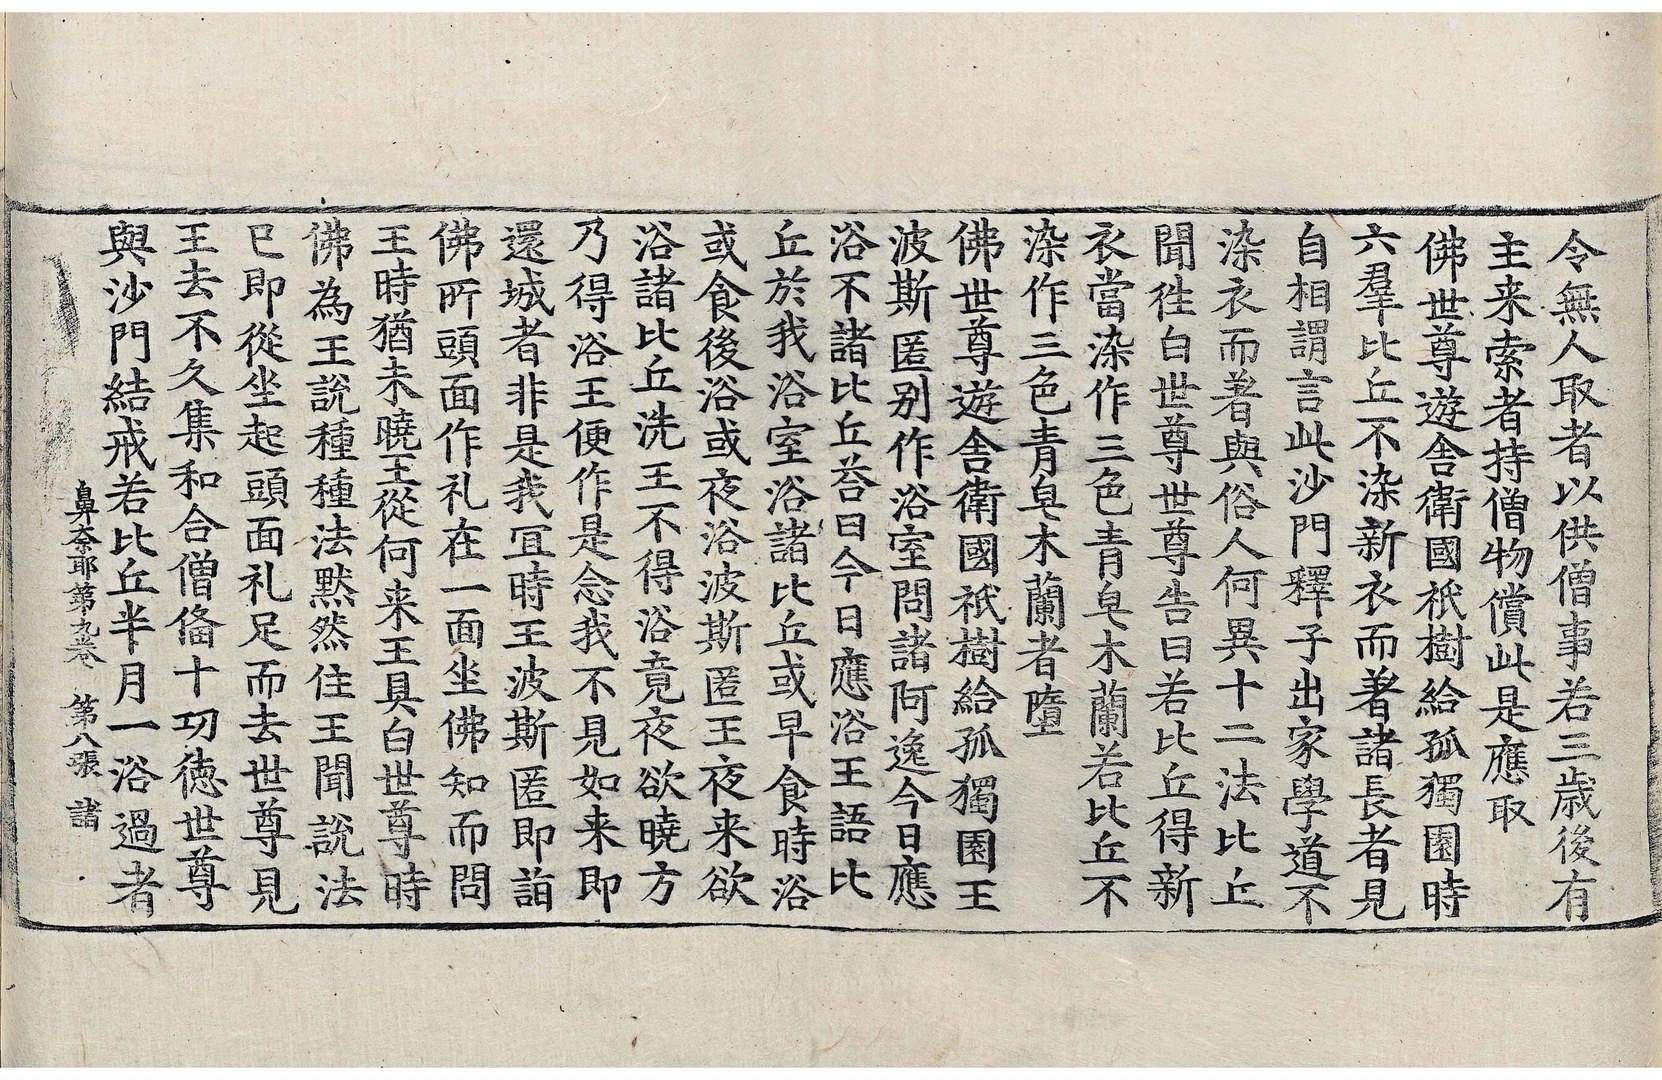 令無人取者以供僧事若三歲後有
主来索者持僧物償此是應取
佛世尊遊舍衛國祇樹給孤獨園時
六羣比丘不染新衣而著諸長者見
自相謂言此沙門釋子出家學道不
染衣而著與俗人何異十二法比丘
聞徃白世尊世尊告曰若比丘得新
衣當染作三色青皁木蘭若比丘不
染作三色青皁木蘭者墮
佛世尊遊舍衛國祇樹給孤獨園王
波斯匿别作浴室問諸阿逸今日應
浴不諸比丘荅曰今日應浴王語比
丘於我浴室浴諸比丘或早食時浴
或食後浴或夜浴波斯匿王夜来欲
浴諸比丘洗王不得浴竟夜欲曉方
乃得浴王便作是念我不見如来即
還城者非是我冝時王波斯匿即詣
佛所頭面作礼在一面坐佛知而問
王時猶未曉王從何来王具白世尊時
佛為王說種種法默然住王聞說法
已即從坐起頭面礼足而去世尊見
王去不久集和合僧俻十功徳世尊
與沙門結戒若比丘半月一浴過者
鼻奈耶第九卷 第八張 諸